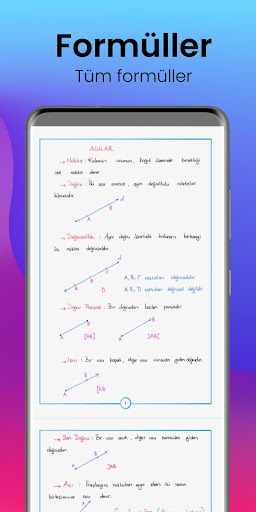 Formüller
Tüm formüller
AÇILAR
→ Nokta : Kalemin ucunun, kağıt üzerinde bıraktığı
ize nokta denir.
→ Doğru : İki ucu sınırsız, aynı doğrultulu noktalar
kümesidir.
A B d
→ Doğrusallık : Aynı doğru üzerinde bulunan herhangi
üç nokta doğrusaldır.
A B C d
.D
A, B, C noktaları doğrusaldır.
A, B, D noktaları doğrusal değildir.
→ Doğru Parçası : Bir doğrudan kesilen parçasıdır.
A B
[AB]
A B
]AB[
→ Işın : Bir ucu kapalı, diğer ucu sonsuza giden doğrudur.
A B
[AB
1
→ Yarı Doğru : Bir ucu açık, diğer ucu sonsuza giden
doğrudur.
A B
]AB
→ Açı : Başlangıç noktaları aynı olan iki ışının
birleşimine açı denir.